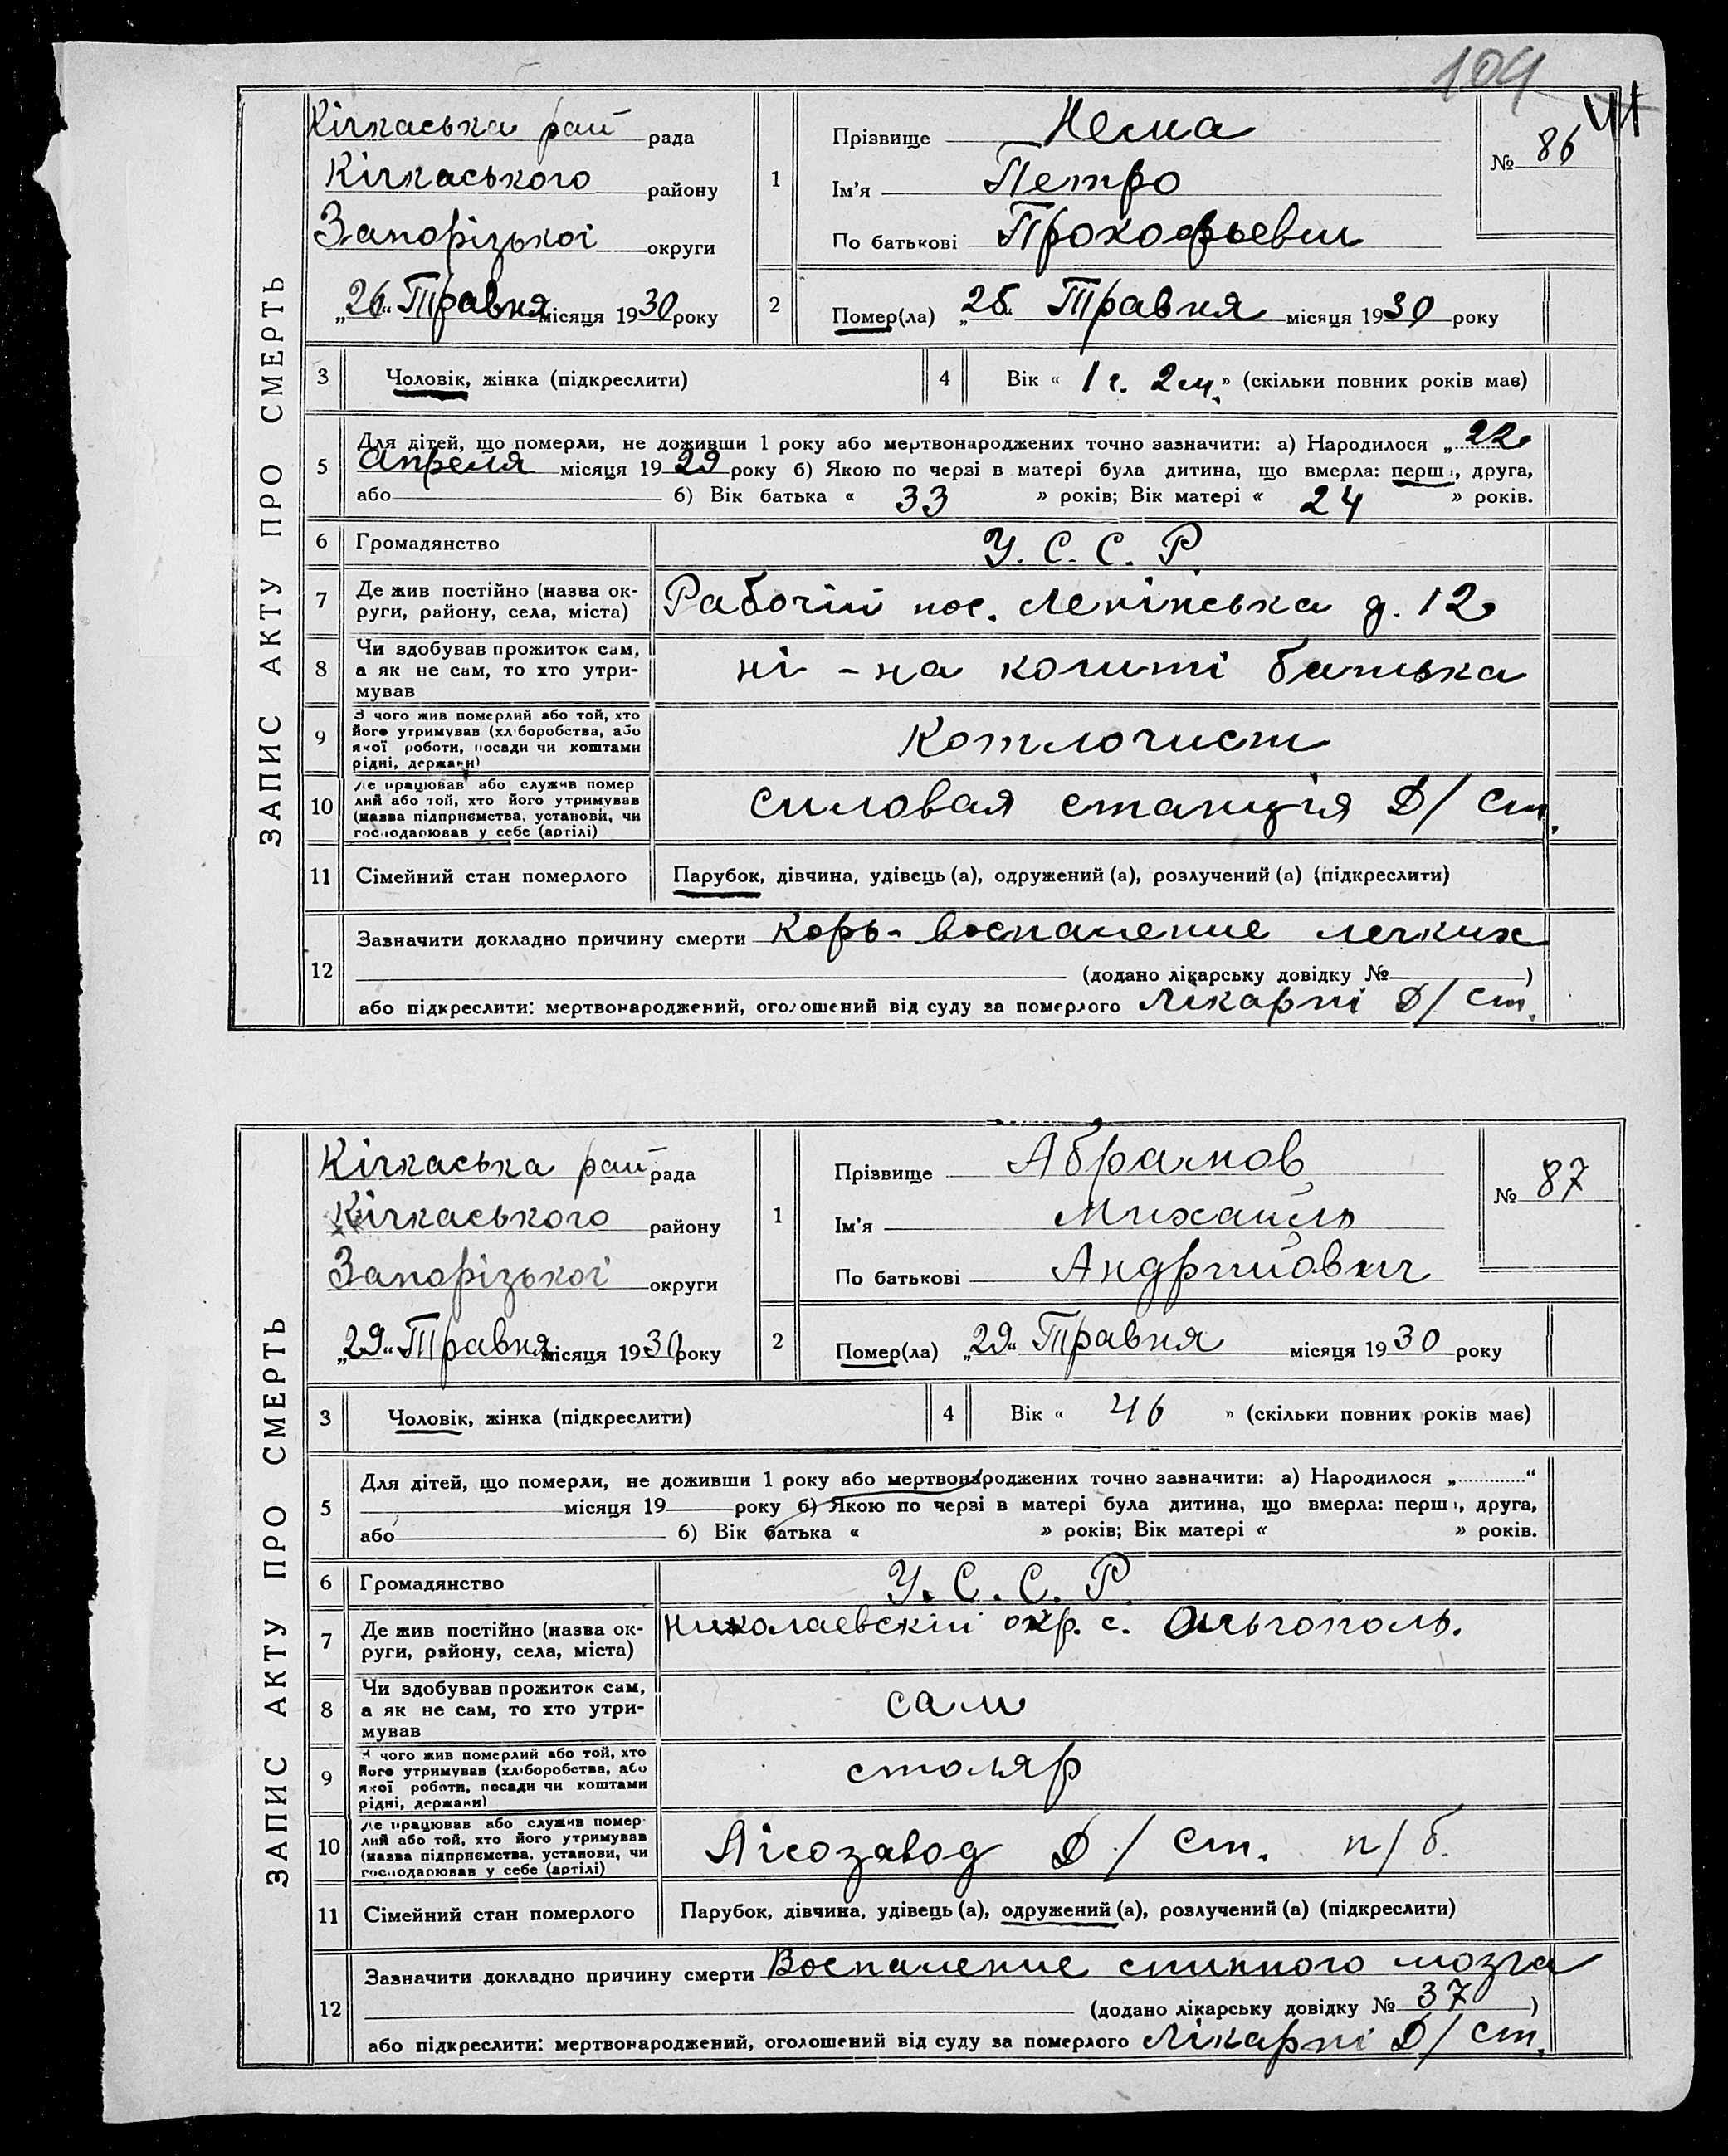 104
ЗАПИС АКТУ ПРО СМЕРТЬ
Кічкаська рай рада
Кічкаського району
Запорізької округи
„26“ Травня місяця 1930 року
1
Прізвище
Ім'я Петро
По батькові Прокофьевич
№ 86
2
Помер(ла) „25“ Травня місяця 1930 року
3
Чоловік, жінка (підкреслити)
4
Вік « 1 г. 2 м. » (скільки повних років має)
5
Для дітей, що померли, не доживши 1 року або мертвонароджених точно зазначити: а) Народилося „22
Апреля місяця 1929 року б) Якою по черзі в матері була дитина, що вмерла: перша, друга,
або б) Вік батька « 33 » років; Вік матері « 24 » років.
6
Громадянство У. С. С. Р.
7
Де жив постійно (назва ок-
руги, району, села, міста)
Рабочій пос. Ленінська д. 12
8
Чи здобував прожиток сам,
а як не сам, то хто утри-
мував
ні - на кошті батька
9
З чого жив померлий або той, хто
його утримував (хліборобства, або
якої роботи, посади чи коштами
рідні, держави)
Котлочист
10
Де працював або служив помер
лий або той, хто його утримував
(назва підприємства, установи, чи
господарював у себе (артілі)
силовая станція Д/ст.
11
Сімейний стан померлого
Парубок, дівчина, удівець (а), одружений (а), розлучений (а) (підкреслити)
12
Зазначити докладно причину смерти Корь - воспаление легких
(додано лікарську довідку № )
або підкреслити: мертвонароджений, оголошений від суду за померлого Лікарні Д/ст.
ЗАПИС АКТУ ПРО СМЕРТЬ
Кічкаська рай рада
Кічкаського району
Запорізької округи
„29“ Травня місяця 1930 року
1
Прізвище Абрамов
Ім'я Михайль
По батькові Андрийович
№ 87
2
Помер(ла) „29“ Травня місяця 1930 року
3
Чоловік, жінка (підкреслити)
4
Вік « 46 » (скільки повних років має)
5
Для дітей, що померли, не доживши 1 року або мертвонароджених точно зазначити: а) Народилося „ “
місяця 19 року б) Якою по черзі в матері була дитина, що вмерла: перша, друга,
або б) Вік батька « » років; Вік матері « » років.
6
Громадянство У. С. С. Р.
7
Де жив постійно (назва ок-
руги, району, села, міста)
Николаевскій окр. с. Ольгополь.
8
Чи здобував прожиток сам,
а як не сам, то хто утри-
мував
сам
9
З чого жив померлий або той, хто
його утримував (хліборобства, або
якої роботи, посади чи коштами
рідні, держави)
столяр
10
Де працював або служив помер-
лий або той, хто його утримував
(назва підприємства, установи, чи
господарював у себе (артілі)
Лісозавод Д/ст. п/б.
11
Сімейний стан померлого
Парубок, дівчина, удівець (а), одружений (а), розлучений (а) (підкреслити)
12
Зазначити докладно причину смерти Воспаление спинного мозга
(додано лікарську довідку № 37 )
або підкреслити: мертвонароджений, оголошений від суду за померлого Лікарні Д/ст.